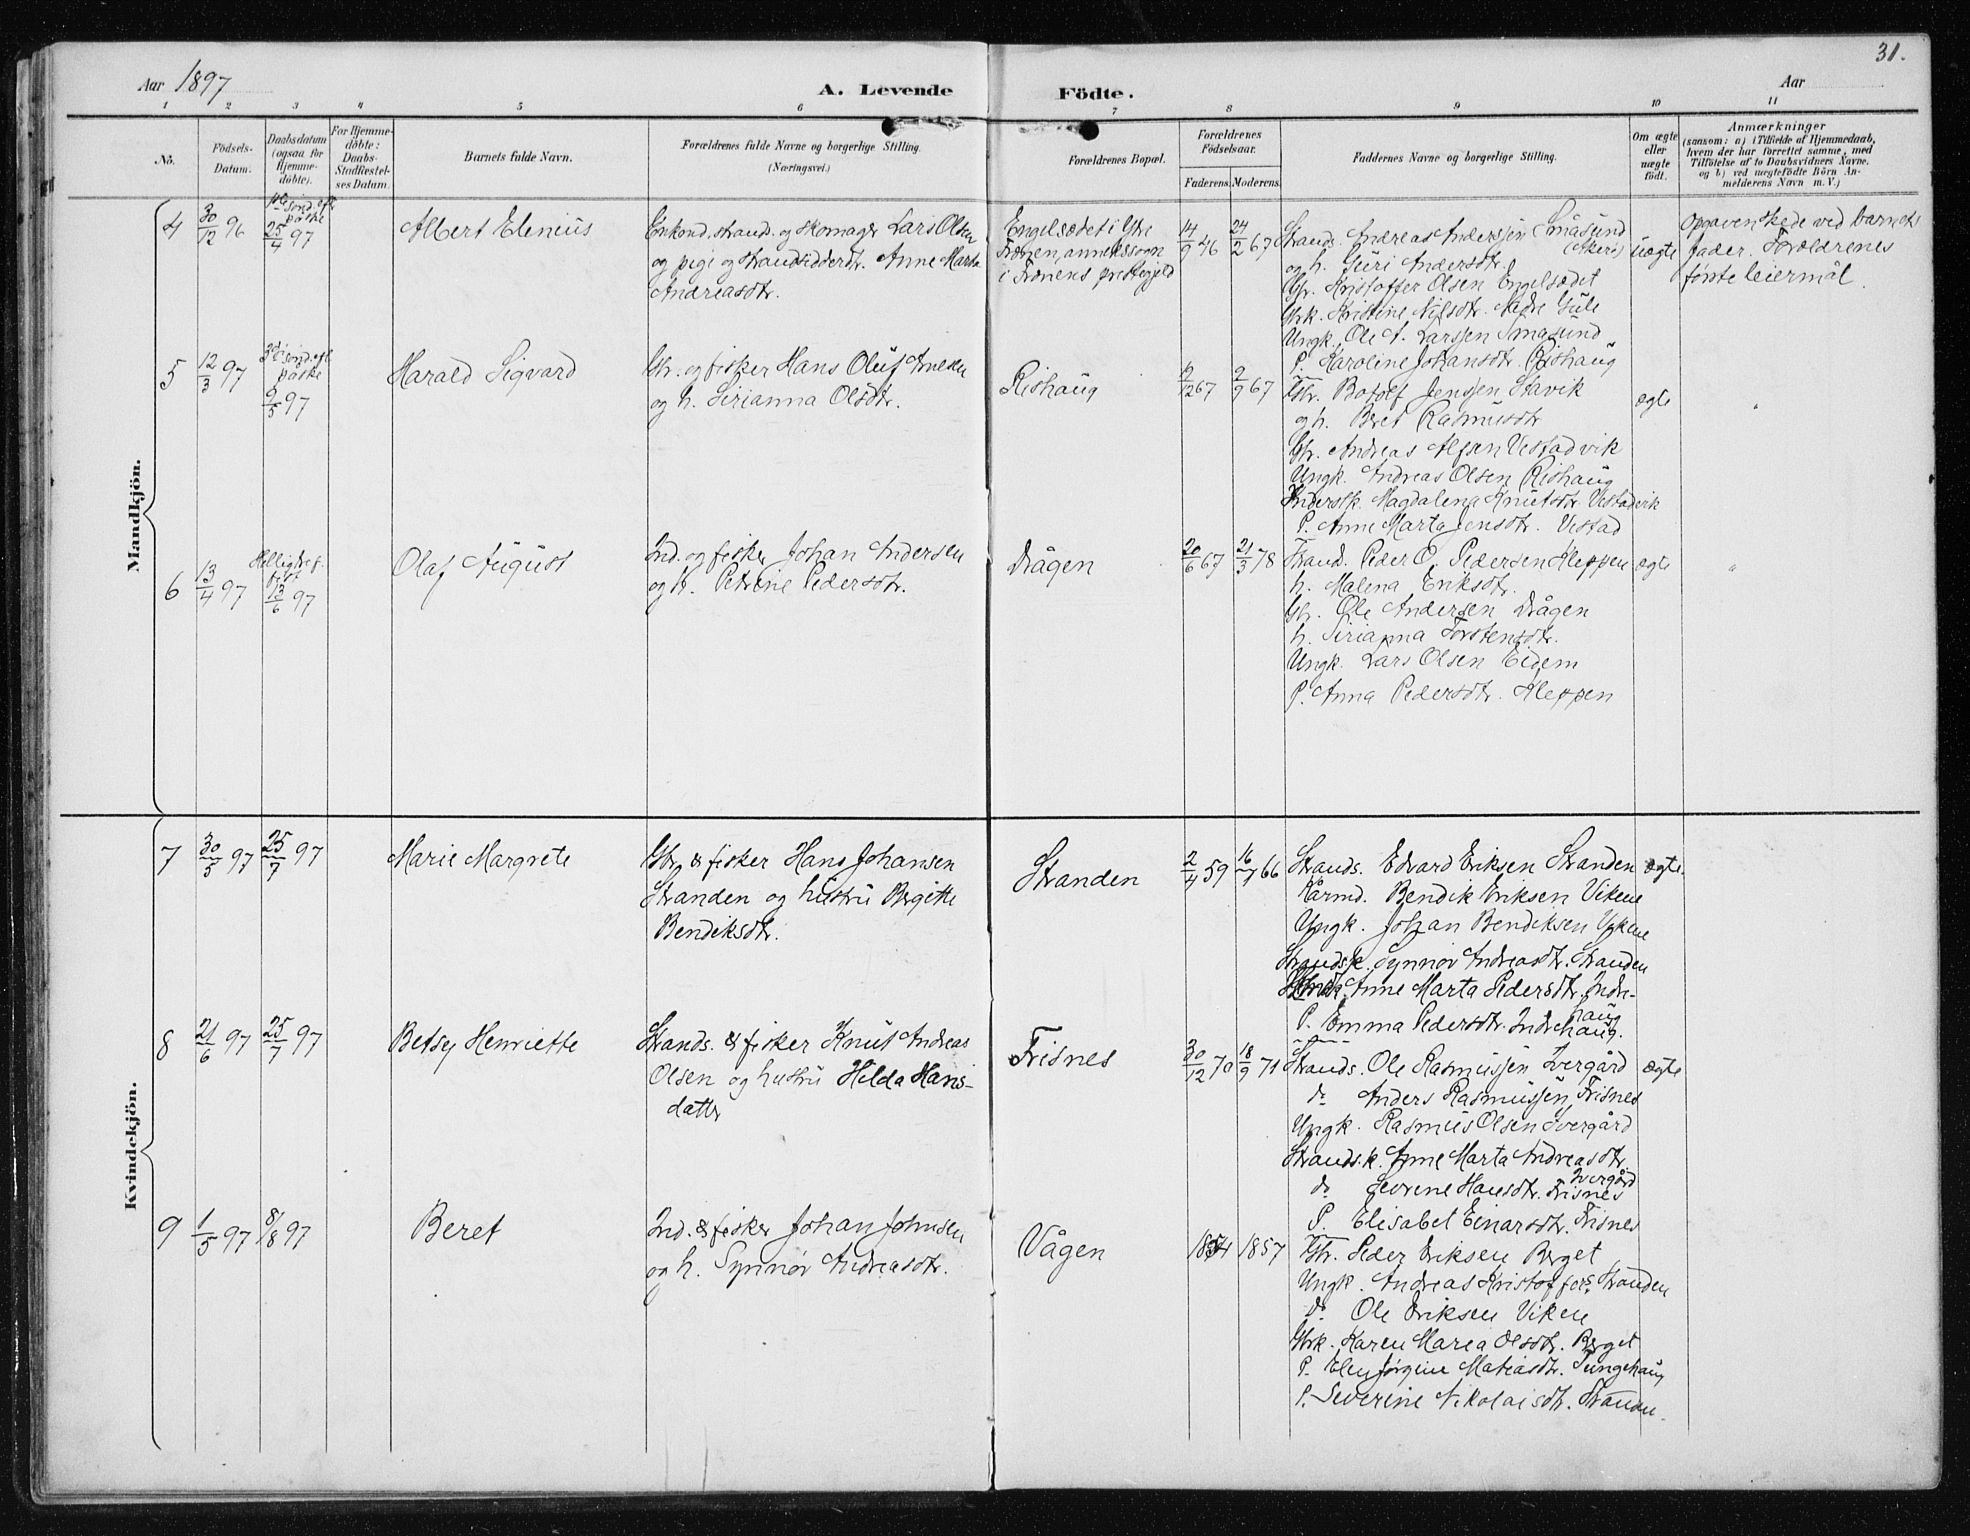 31.
Aar 1897
A. Levende Födte.
Aar
1 2 3 4 5 6 7 8 9 10 11
No.
Födsels-Datum.
Daabsdatum (ogsaa for Hjemme-döbte).
For Hjemme-döbte: Daabs-Stadfæstel-ses Datum.
Barnets fulde Navn.
Forældrenes fulde Navne og borgerlige Stilling.
(Næringsvei.)
Forældrenes Bopæl.
Forældrenes Födselsaar.
Faderens. Moderens.
Faddernes Navne og borgerlige Stilling.
Om ægte eller uægte födt.
Anmærkninger
(saasom: a) i Tilfælde af Hjemmedaab,
hvem der har forrettet samme, med
Tilföielse af to Daabsvidners Navne.
og b) ved uægtefödte Börn An-
melderens Navn m. V.)
Mandkjön.
4
30/12 96
sönd. eft. påske
25/4 97
Albert Elenius
Enkemd. strands. og skomager Lars Olsen
og pige og strandsidderdtr. Anne Marta
Andreasdtr.
Engelsædet i Ytre
Frænen, annekssogn
i Frænens prestegjeld
14/9 46
24/2 67
Strands. Andreas Andersen Småsund
(Akerö)
og h. Guri Andersdtr.
Gbr. Kristoffer Olsen Engelsædet
Gbrk. Kristine Nilsdtr. Nedre Gule
Ungk. Ole A. Larssen Småsund
P. Karoline Johansdtr. Rishaug
uægte
Opgaven skede ved barnets
fader. Forældrenes
første leiermål.
5
12/3 97
3die sönd. eft. påske
9/5 97
Harald Sigvard
Gbr. og fisker Hans Oluf Arnesen
og h. Sirianna Olsdtr.
Rishaug
9/12 67
2/9 67
Gbr. Botolf Jenssen Stavik
og h. Beret Rasmusdtr
Gbr. Andreas Alfsen Vestadvik
Ungk. Andreas Olsen Rishaug
Inderstk. Magdalena Knutsdtr. Vestadvik
P. Anne Marta Jensdtr. Vestad
ægte
"
6
13/4 97
13/6 97
Olaf August
Ind. og fisker Johan Andersen
og h. Petrine Pedersdtr.
Drågen
20/6 67
21/3 78
Strand. Peder O. Pedersen Kleppen
h. Malena Eriksdtr.
Gbr. Ole Andersen Drågen
h. Sirianna Torstensdtr.
Ungk. Lars Olsen Eidem
P. Anna Pedersdtr. Kleppen
ægte
"
Kvindekjön.
7
30/5 97
25/7 97
Marie Margrete
Gbr. & fisker Hans Johansen
Stranden og hustru Bergitte
Bendiksdtr.
Stranden
2/4 59
16/7 66
Strands. Edvard Eriksen Stranden
Kårmd. Bendik Eriksen Vikene
Ungk. Johan Bendiksen Vikene
Strands.k. Synnøv Andreasdtr. Stranden
Anne Marta Pedersdtr. Indre-
haug
P. Emma Pedersdtr. Indrehaug.
ægte.
8
21/6 97
25/7 97
Betsy Henriette
Strands. & fisker Knut Andreas
Olsen og hustru Hilda Hans-
datter
Frisnes
30/12 70
18/9 71
Strands. Ole Rasmussen Ivergård
do Anders Rasmussen Frisnes
Ungk. Rasmus Olsen Ivergård
Strands.k. Anne Marta Andreasdtr.
Ivergård
do Severine Hansdtr. Frisnes
P. Elisabet Einarsdtr. Frisnes
ægte
9
1/5 97
8/8 97
Beret
Ind. & fisker Johan Johnsen
og h. Synnøv Andreasdtr.
Vågen
1854
1857
Gbr. Peder Eriksen Berget
Ungk. Andreas Kristoffers. Stranden
do Ole Eriksen Viken
Gbrk. Karen Marea Olsdtr. Berget
P. Elen Jørgine Matiasdtr. Tungehaug
P. Severine Nikolaisdtr. Stranden.